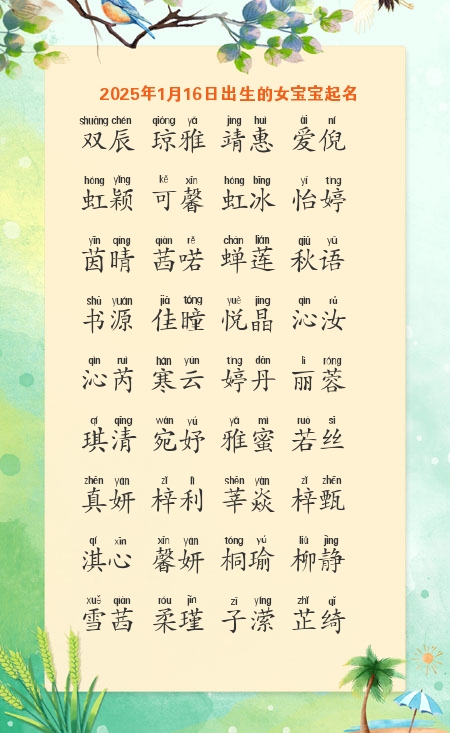 2025年1月16日出生的女宝宝起名
shuāng chén qióng yǎ jìng huì ài ní
双辰 琼雅 靖惠 爱倪
hóng yǐng kě xīn hóng bīng yí tíng
虹颖 可馨 虹冰 怡婷
yīn qíng qiàn rě chán lián qiū yǔ
茵晴 茜喏 蝉莲 秋语
shū yuán jiā tóng yuè jīng qìn rǔ
书源 佳瞳 悦晶 沁汝
qìn ruì hán yún tíng dān lì róng
沁芮 寒云 婷丹 丽蓉
qí qīng wǎn yú yǎ mì ruò sī
琪清 宛妤 雅蜜 若丝
zhēn yán zǐ lì shēn yàn zǐ zhēn
真妍 梓利 莘焱 梓甄
qí xīn xīn yán tóng yú liǔ jìng
淇心 馨妍 桐瑜 柳静
xuě qiàn róu jǐn zǐ yíng zhǐ qǐ
雪茜 柔瑾 子潆 芷绮